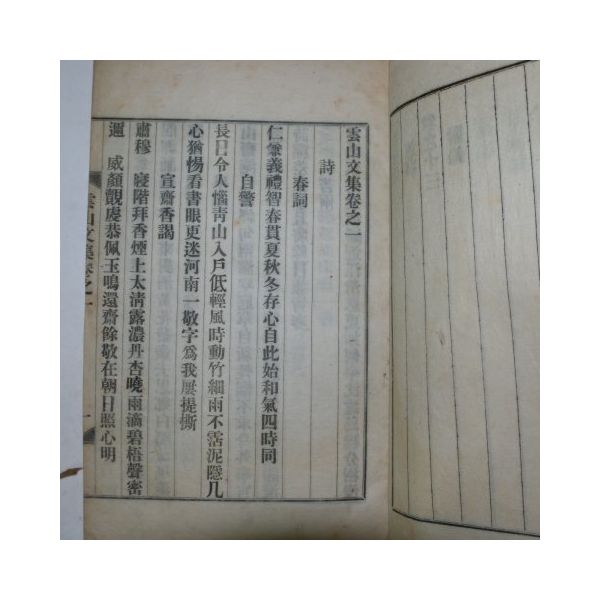 雲山文集卷之一
詩
春詞
仁兼義禮智春貫夏秋冬存心自此始和氣四時同
自警
長日令人惱靑山入戶低輕風時動竹細雨不霑泥隱几
心猶惕看書眼更迷河南一敬字爲我屢提撕
宣齋香謁
肅穆 寢階拜香煙上太淸露濃丹杏曉雨滴碧梧聲密
邇 威顏覿虔恭佩玉鳴還齋餘敬在朝日照心明
雲山文集卷之一